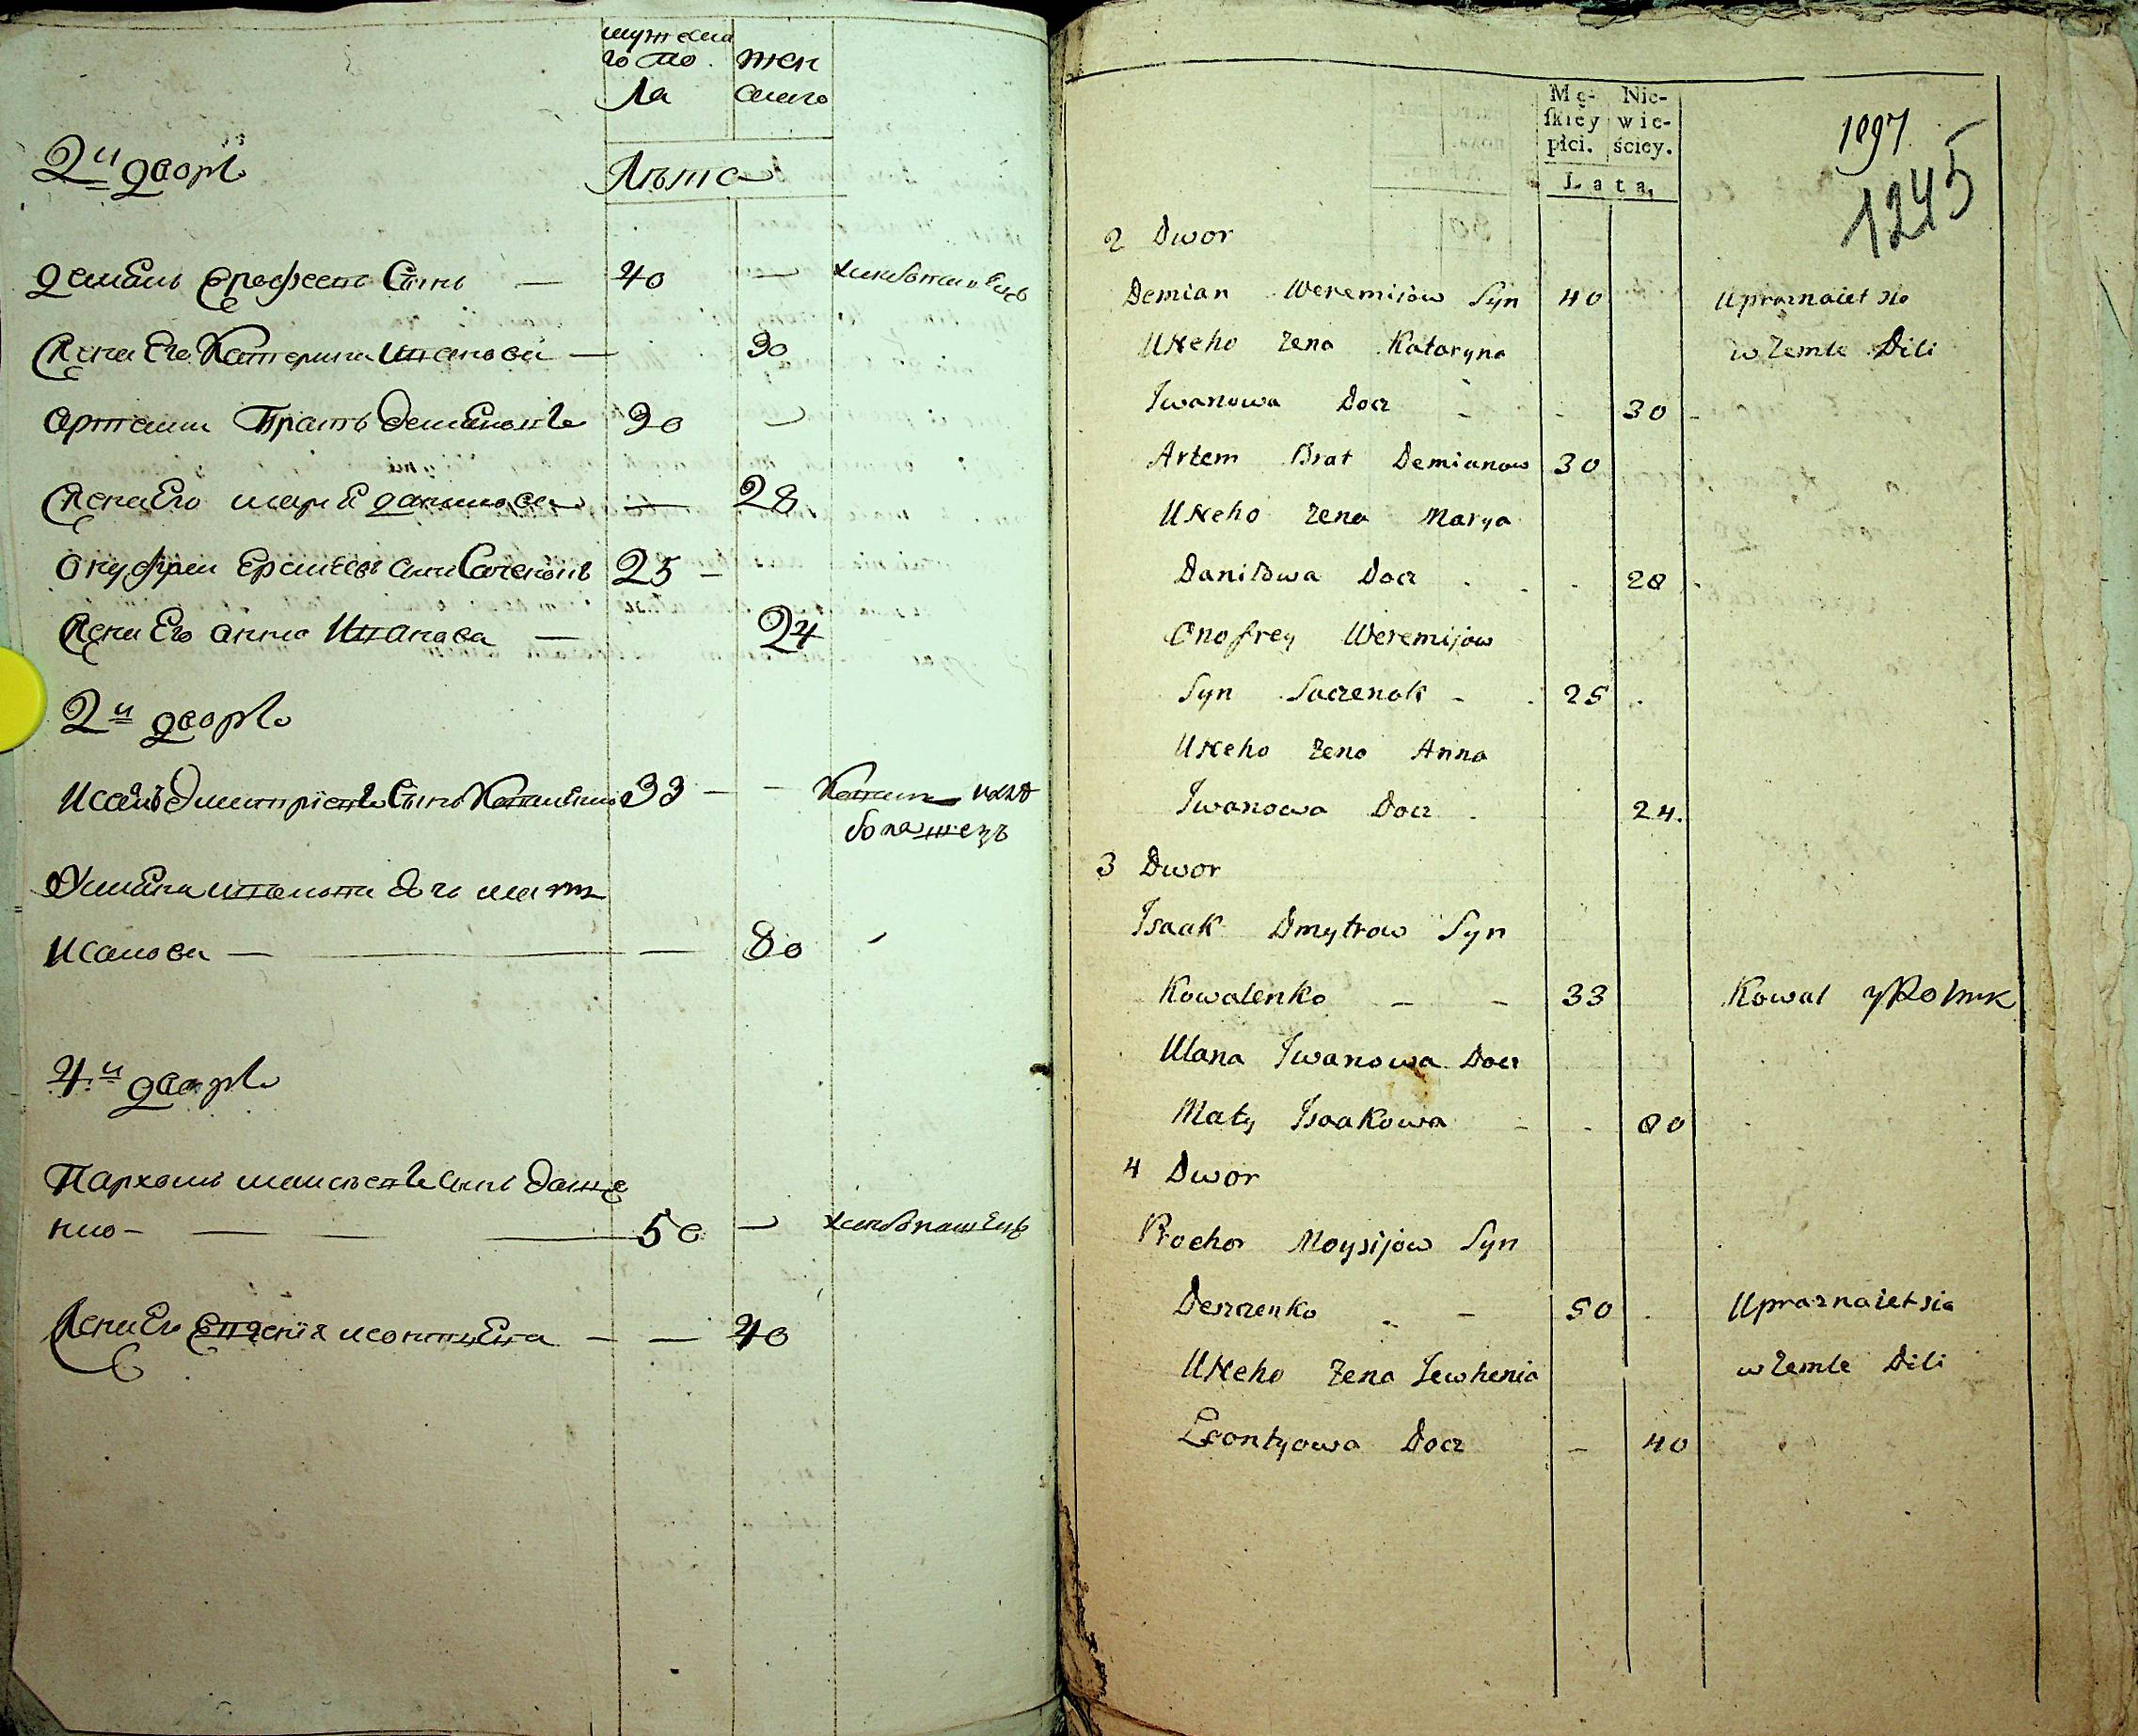 мужска
го по
ла
жен
скаго
Лѣта
2й дворъ
Демянъ Ерофеевъ Сынъ — 40 — хлебопашецъ
Жена Его Катерина Иванова — 30
Артемъ Братъ Демяновъ 30
Жена Его Маря Данилова — 28
Онуфрей Еремѣевъ сынъ Саченокъ 25 —
Жена Его Анна Иванова — 24
2й дворъ
Исакъ Дмитріевъ Сынъ Коваленко 33 — - Коваль и хлѣ
бопашецъ
Ульяна Иванова дочь мать
Исакова — — 80
4й дворъ
Пархомъ Моисѣевъ сынъ Даще
нко — 50 — хлебопашецъ
Жена Его Евгенія Леонтьева — — 40
Mę- Nie-
ſkiey wie-
płci. ściey.
Lata,
1097
1245
2 Dwor
Demian Weremijow Syn 40 Upraznaiet sia
w Zemle Dili
Ukeho Zena Kataryna
Iwanowa Docz - - 30 -
Artem Brat Demianow 30
Ukeho Zena Marya
Daniłowa Docz . . . 28 .
Onofrey Weremijow
Syn Saczenok - . 25 .
Ukeho Zena Anna
Iwanowa Docz . 24.
3 Dwor
Isaak Dmytrow Syn
Kowalenko - - 33 Kowal y Rolnik
Ulana Iwanowa Docz
Maty Isaakowa - - 80
4 Dwor
Prochor Moysijow Syn
Deszczenko - - 50 . Upraznaietsia
w Zemle Dili
Ukeho Zena Jewhenia
Leontyowa Docz - 40